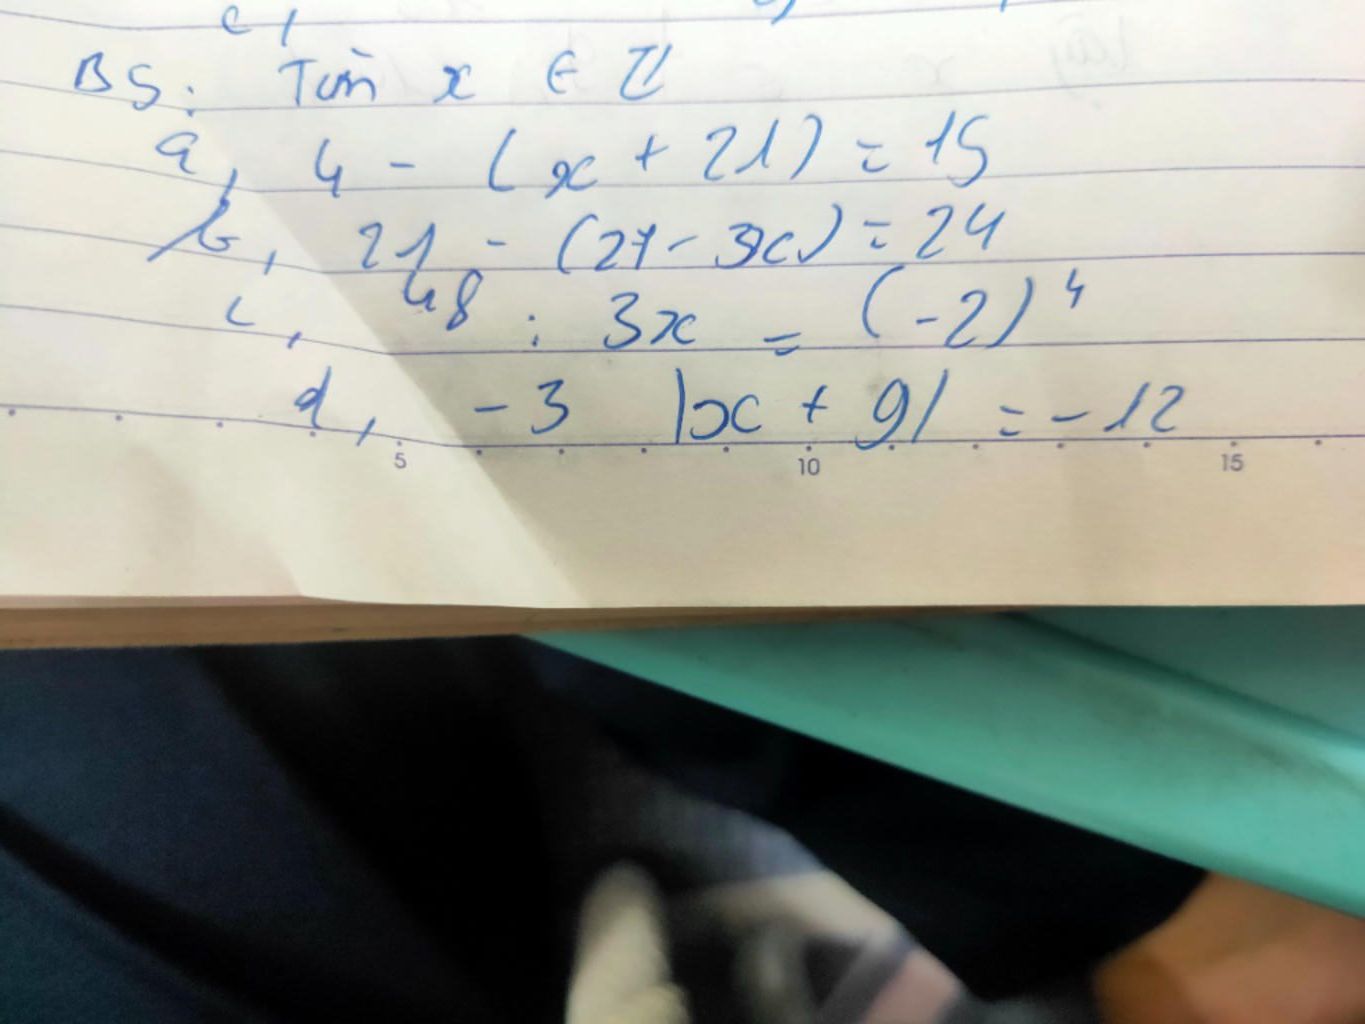 c,
B5: Tìm x ∈ Z
a, 4 - (x + 21) = 15
b, 21 - (27 - 3x) = 24
c, 48 : 3x = (-2)⁴
d, -3 |x + 9| = -12
5 10 15